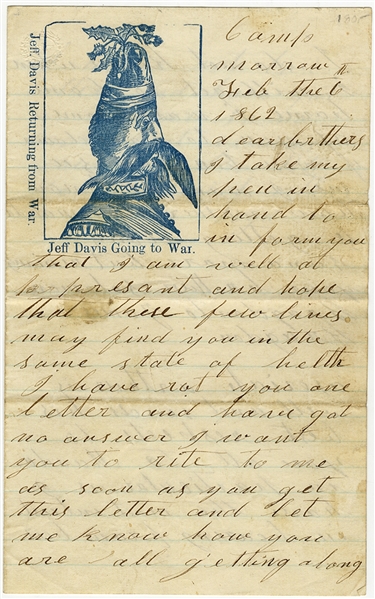 Jeff Davis Returning from War.
Jeff Davis Going to War.
Camp
morrow
Feb the 6
1862
dear brthers
I take my
pen in
hand to
in form you
that I am well at
presant and hope
that these few lines
may find you in the
same state of helth
I have rot you one
letter and have got
no answer I want
you to rite to me
as soon as you get
this letter and let
me know how you
are all getting along